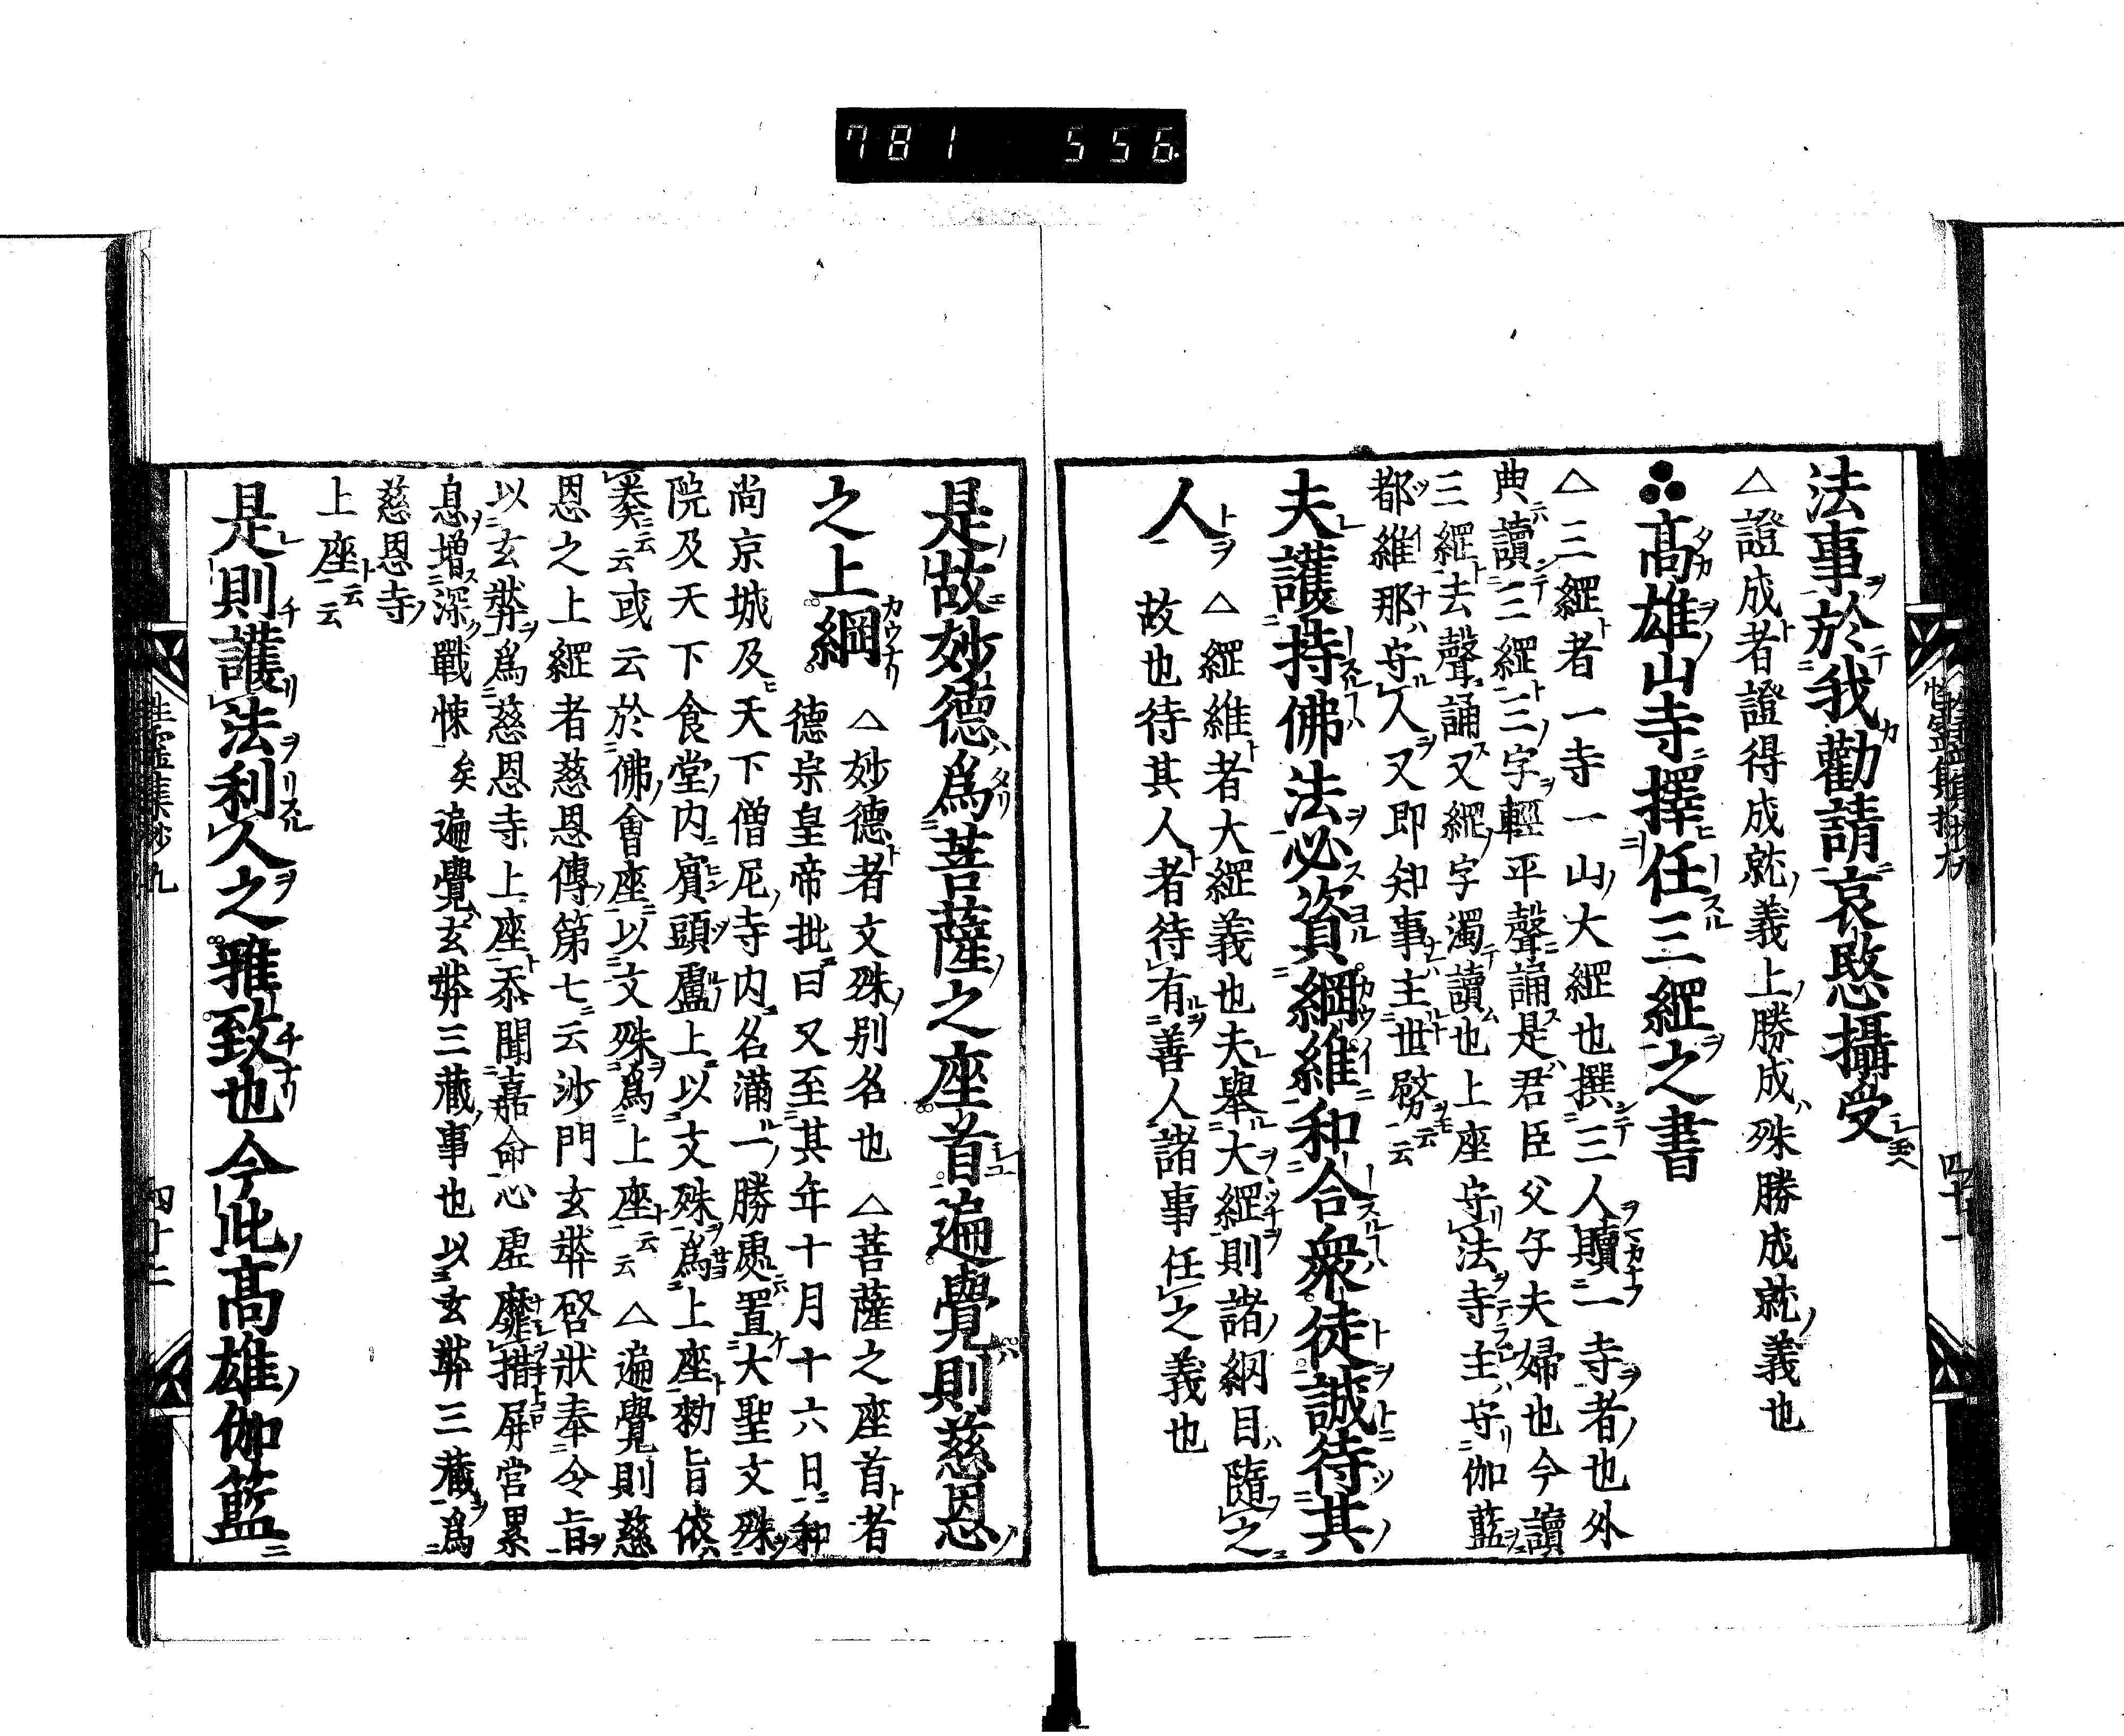 781 556
法事於我勸請哀愍攝受
△證成者證得成就義上勝成殊勝成就義也
高雄山寺擇任三綱之書
△三綱者一寺一山大綱也撰三人贖一寺者也外
典讀三綱三字輕平聲誦是君臣父子夫婦也今讀
三綱去聲誦又綱字濁讀也上座守法寺主守伽藍
都維那守人又即知事主世務云云
夫護持佛法必資綱維和合衆徒誠待其
人 △綱維者大綱義也夫舉大綱則諸網目隨之
故也待其人者待有善人諸事任之義也
是故妙德爲菩薩之座首遍覺則慈恩
之上綱 △妙德者文殊別名也 △菩薩之座首者
德宗皇帝批曰又至其年十月十六日和
尚京城及天下僧尼寺内名滿一勝處置大聖文殊
院及天下食堂内賓頭盧上以文殊爲上座勅旨依
奏云云或云於佛會座以文殊爲上座云云 △遍覺則慈
恩之上綱者慈恩傳第七云沙門玄奘啓狀奉令旨
以玄奘爲慈恩寺上座忝聞嘉命心虛靡措屏營累
息增深戰悚矣遍覺玄奘三藏事也以玄奘三藏爲
慈恩寺
上座云云
是則護法利人之雅致也今此高雄伽藍
四十一
性靈集抄九
四十二